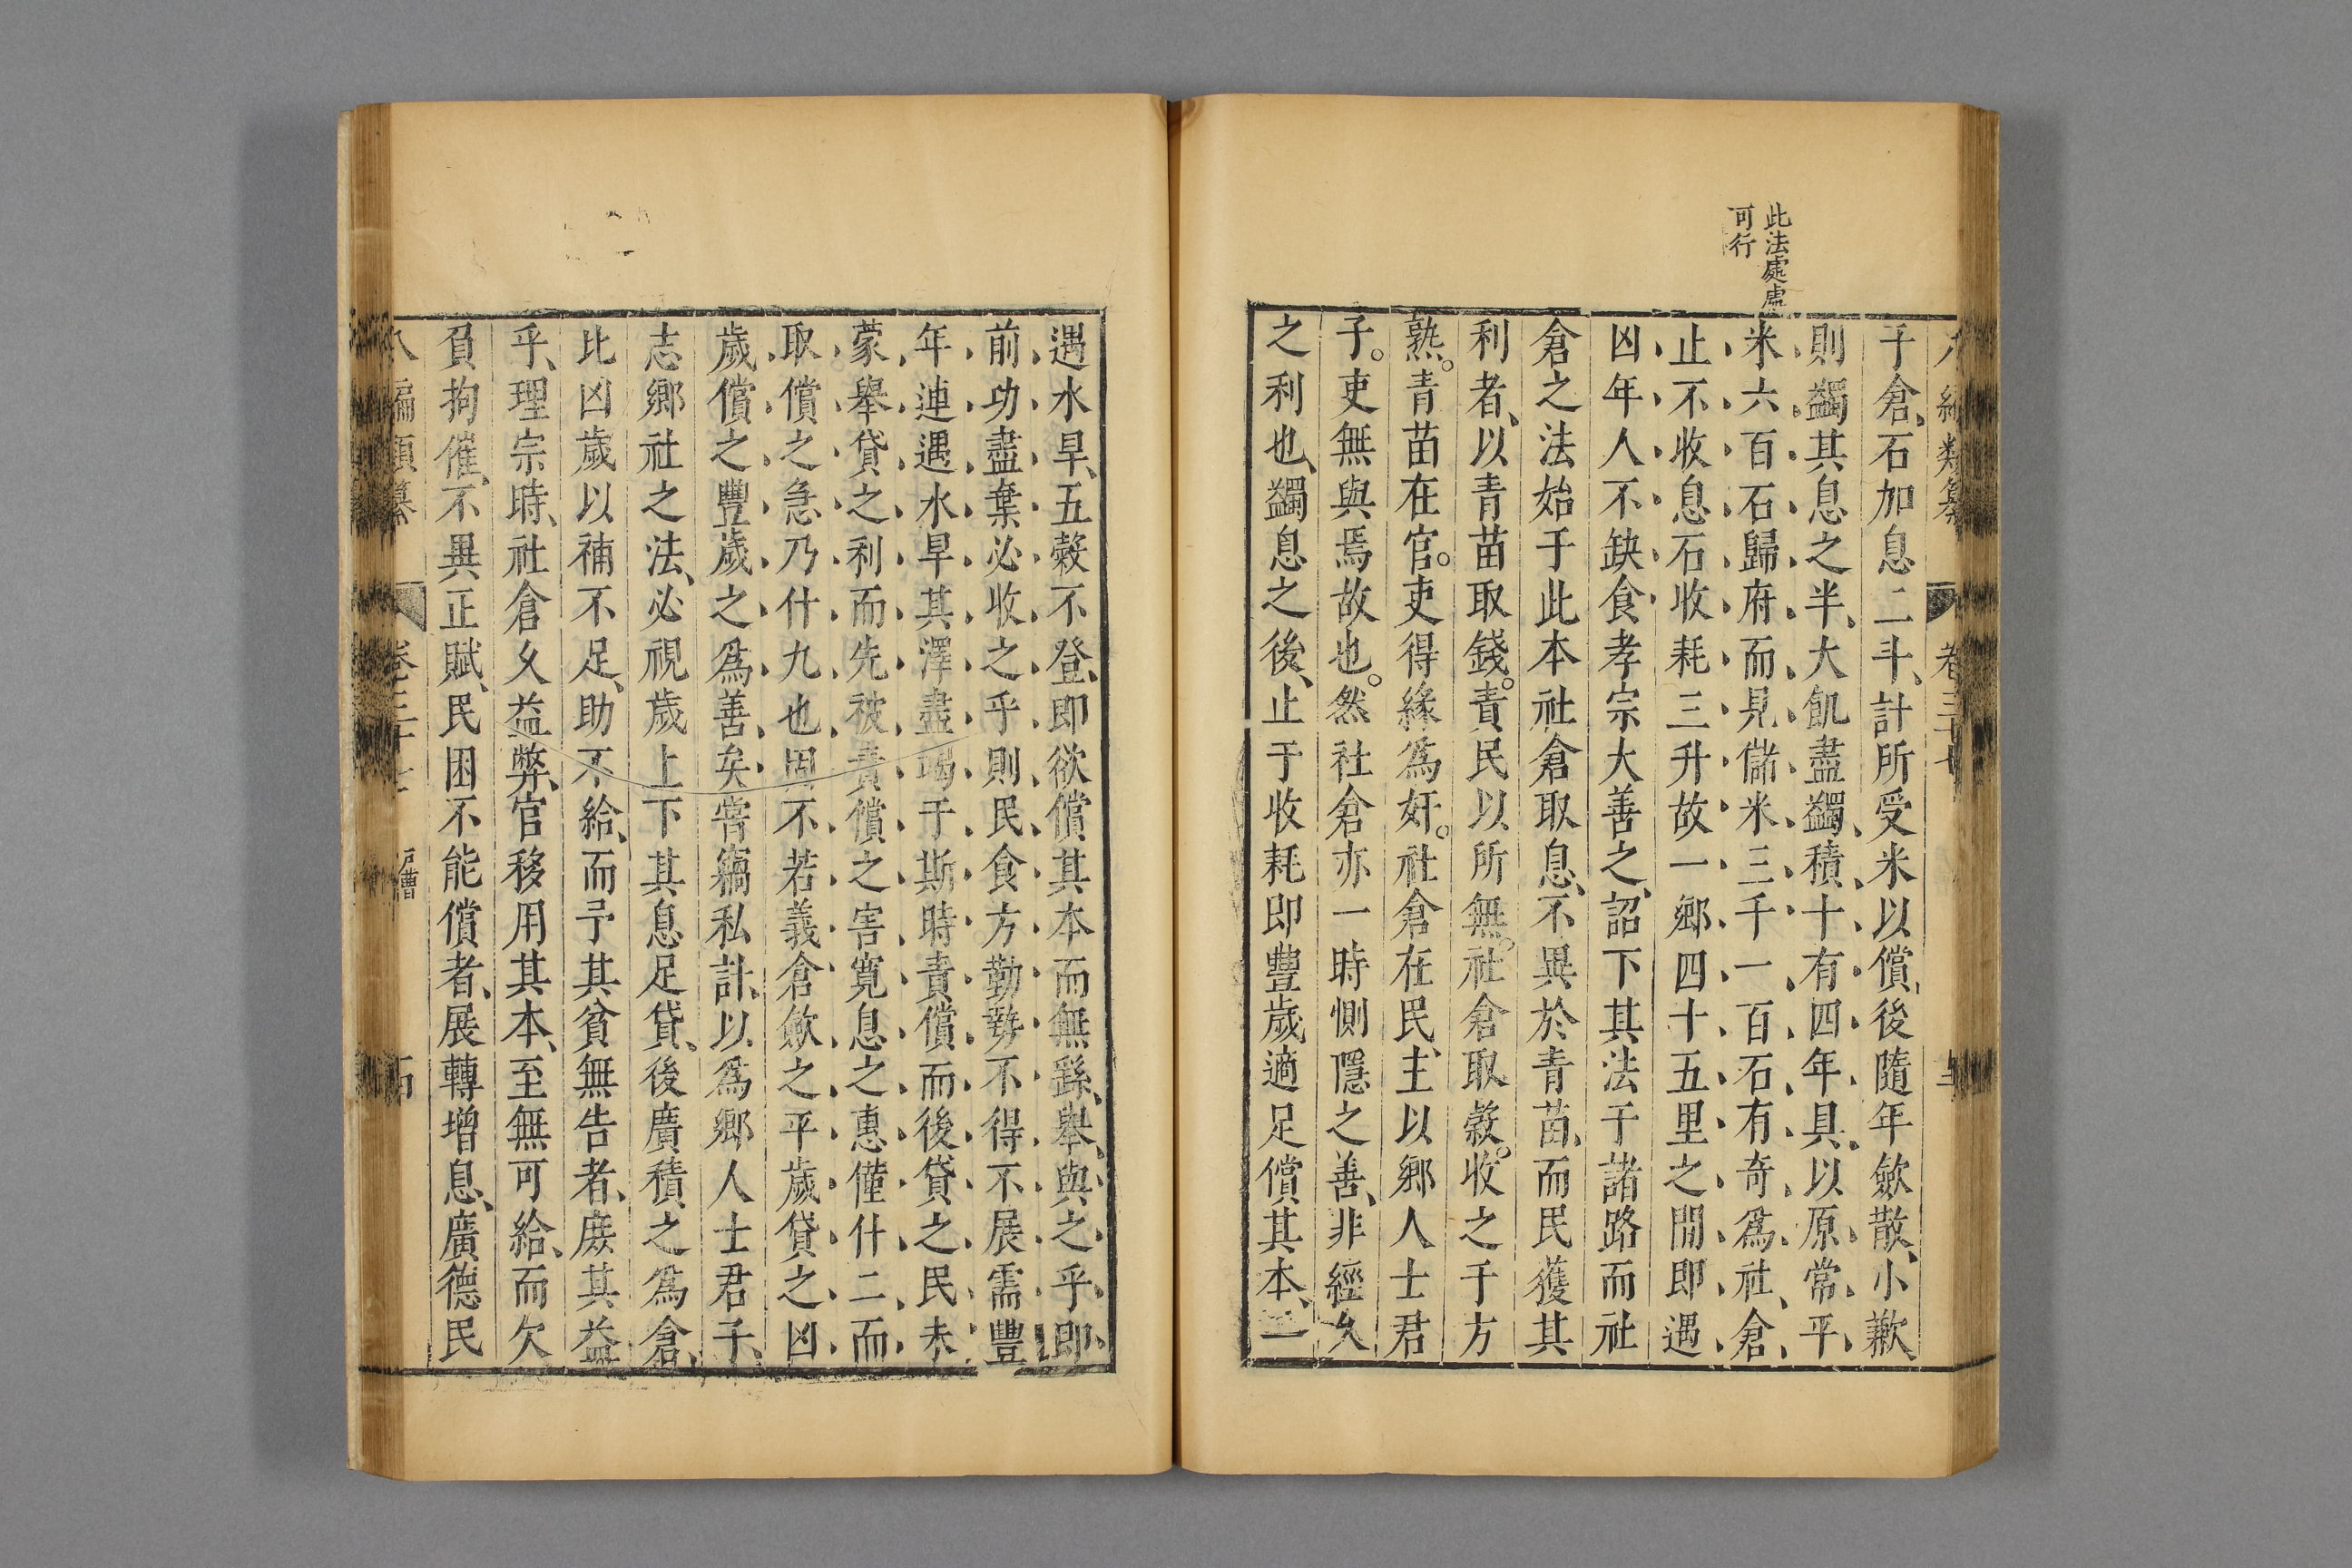 此法處處
可行
子倉、石加息二斗、計所受米以償、後隨年斂散、小歉
則蠲其息之半、大飢盡蠲、積十有四年、具以原常平
米六百石歸府、而見儲米三千一百石、有奇爲社倉、
止不收息、石收耗三升、故一鄉四十五里之間、即遇
凶年、人不缺食、孝宗大善之、詔下其法于諸路、而社
倉之法始于此、本社倉取息、不異於青苗、而民獲其
利者、以青苗取錢。責民以所無。社倉取穀。收之于方
熟。青苗在官。吏得緣爲奸。社倉在民、主以鄉人士君
子。吏無與焉故也。然社倉亦一時惻隱之善、非經久
之利也、蠲息之後、止于收耗、即豐歲適足償其本、一
遇水旱、五穀不登、即欲償其本而無繇、舉與之乎、即
前功盡棄、必收之乎、則民食方勤勞、不得不展需豐
年、連遇水旱、其澤盡竭于斯時、責償而後貸之、民未
蒙舉貸之利、而先被責償之害、寬息之惠僅什二、而
取償之急乃什九也、固不若義倉斂之平歲、貸之凶
歲、償之豐歲之爲善矣、嘗竊私計、以爲鄉人士君子、
志鄉社之法、必視歲上下其息足貸、後廣積之爲倉、
比凶歲以補不足、助不給、而予其貧無告者、庶其益
乎、理宗時、社倉久益弊、官移用其本、至無可給、而欠
負拘催、不異正賦、民困不能償者、展轉增息、廣德民
八編類纂
卷三十七